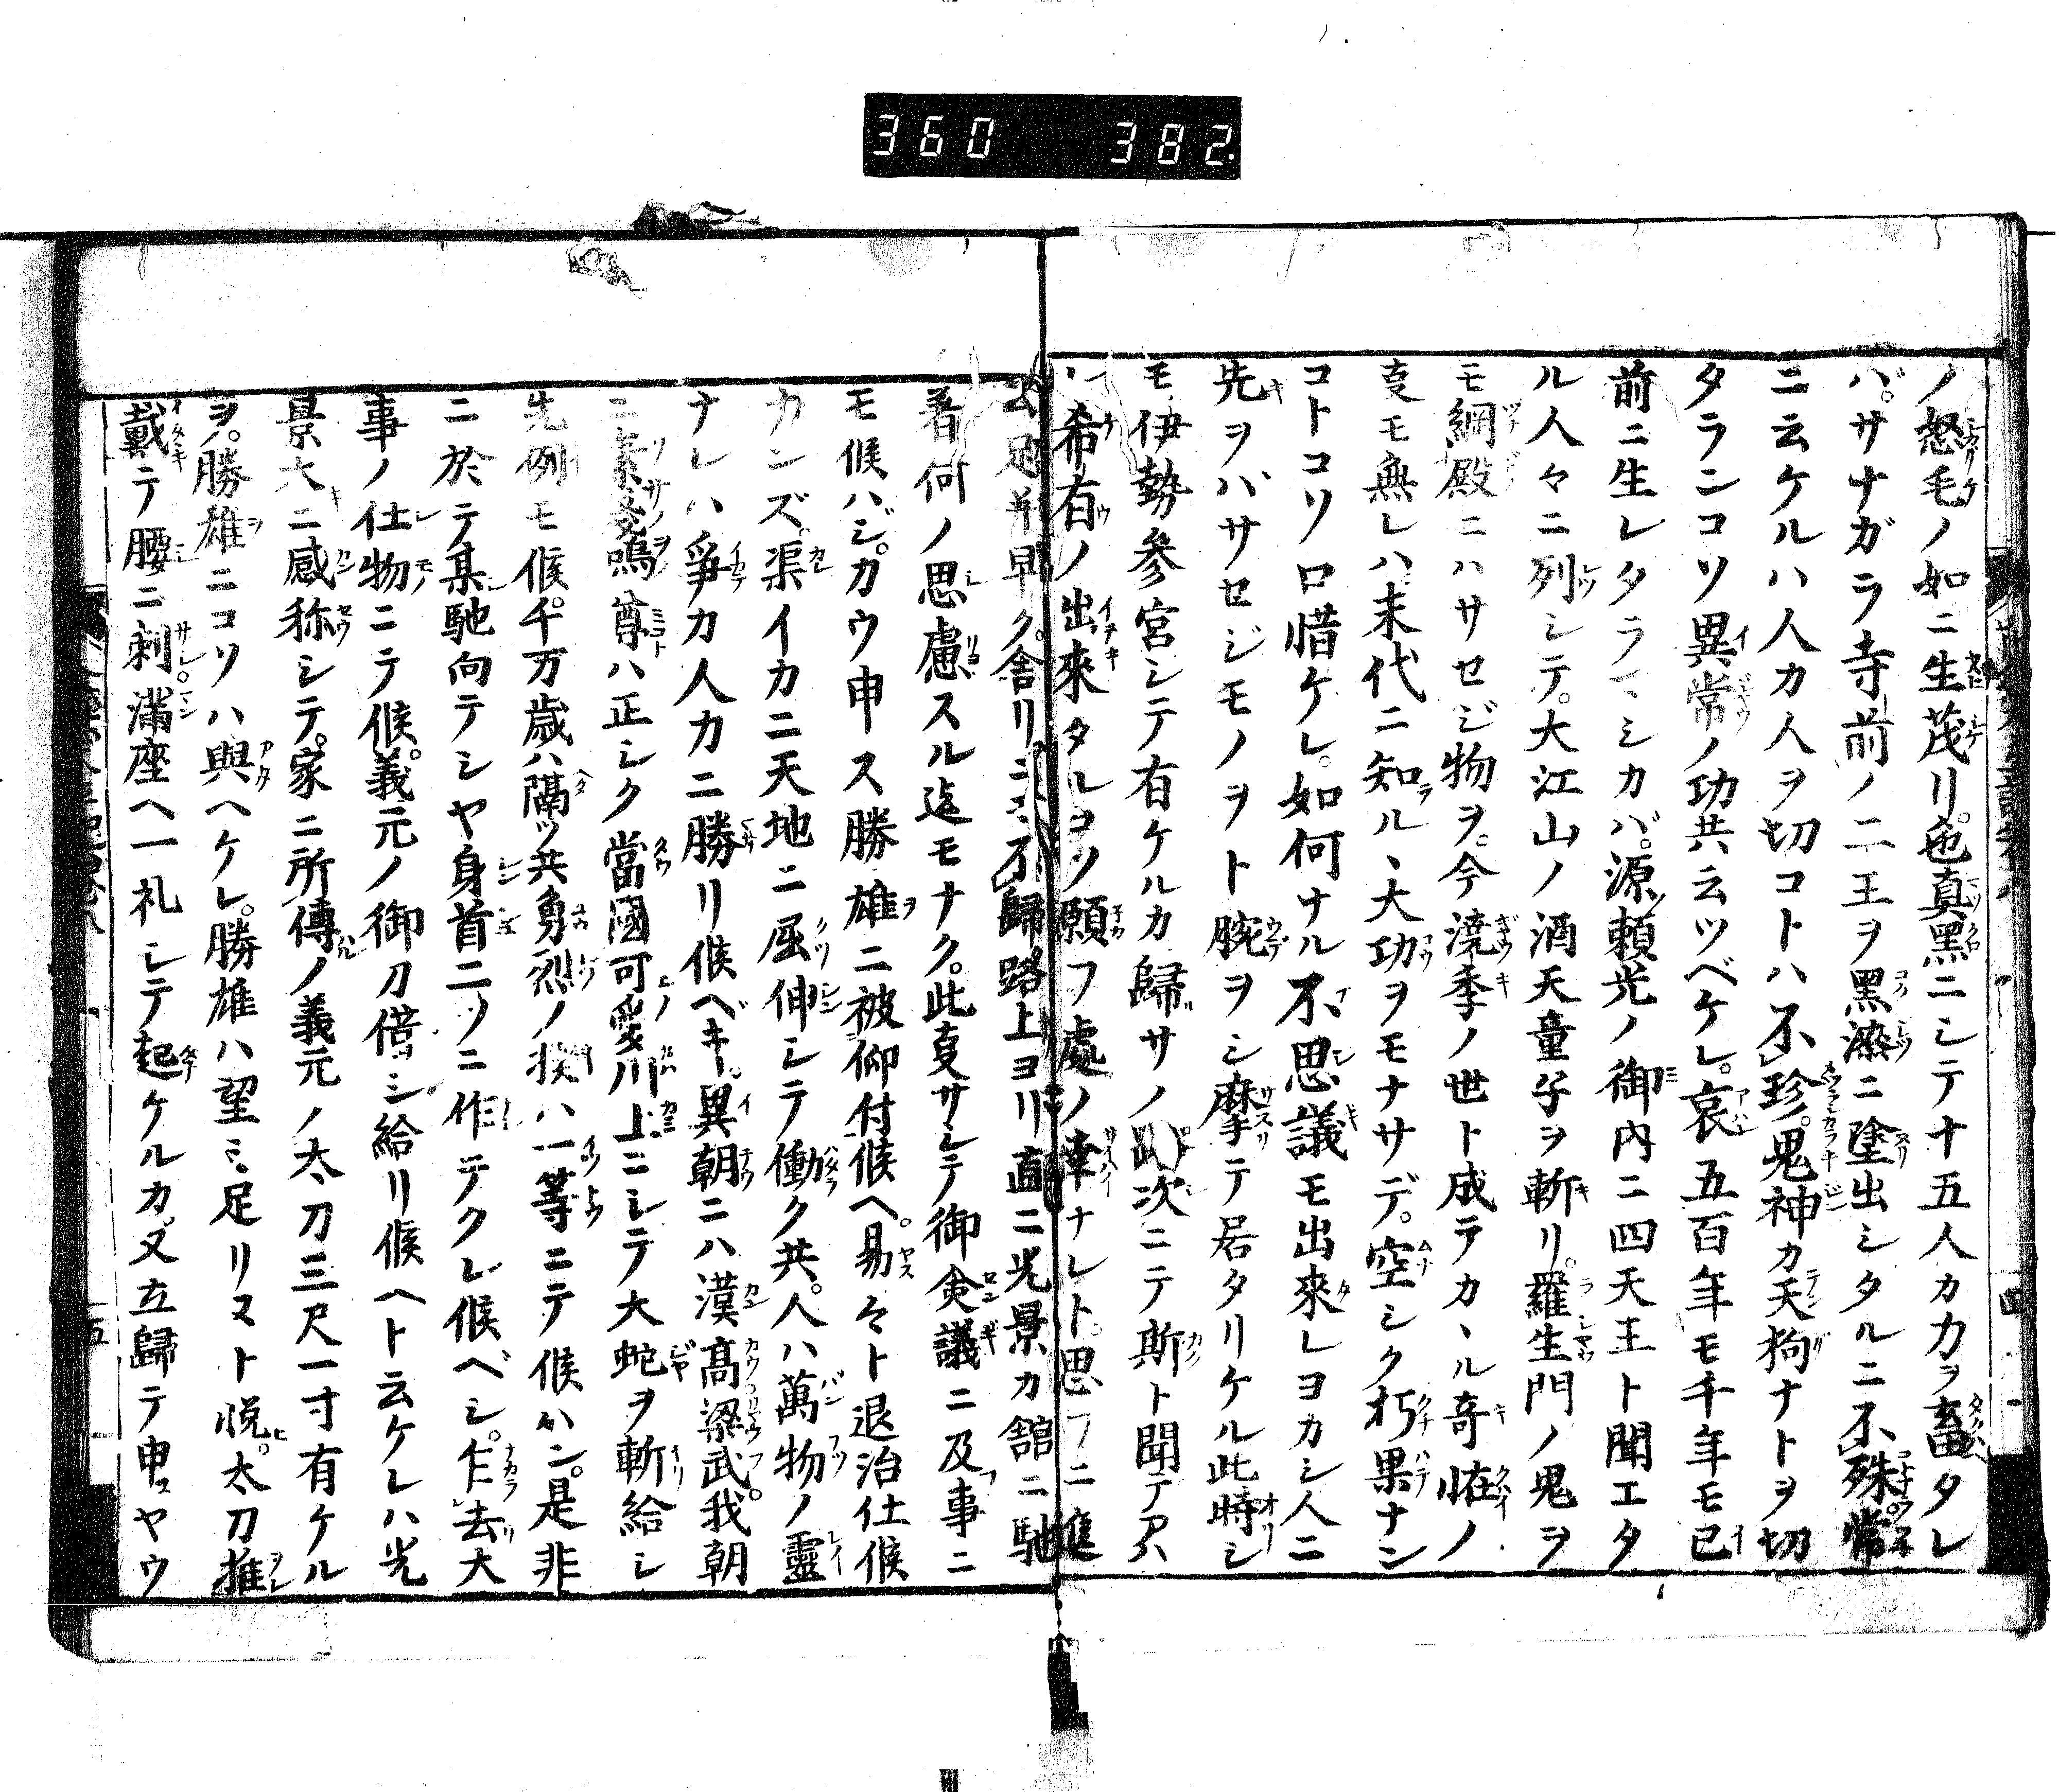 360 382
ノ怒毛ノ如ニ生茂リ。色真黒ニシテ十五人カ力ヲ畜タレ
バ。サナガラ寺前ノ二王ヲ黒漆ニ塗出シタルニ不殊常
ニ云ケルハ人カ人ヲ切コトハ不珍。鬼神カ天狗ナトヲ切
タランコソ異常ノ功共云ツベケレ。哀五百年モ千年モ已
前ニ生レタラマシカバ。源頼光ノ御内ニ四天王ト聞エタ
ル人々ニ列シテ。大江山ノ酒天童子ヲ斬リ。羅生門ノ鬼ヲ
モ綱殿ニハサセジ物ヲ。今澆季ノ世ト成テカヽル奇恠ノ
叓モ無レハ末代ニ知ルヽ大功ヲモナサデ。空シク朽果ナン
コトコソ口惜ケレ。如何ナル不思議モ出來レヨカシ人ニ
先ヲバサセジモノヲト腕ヲシ摩テ居タリケル此時シ
モ伊勢参宮シテ有ケルカ歸サノ次ニテ斯ト聞テ
希有ノ出來タルコソ願フ處ノ幸ナレト思フニ進
早ク舎リニ不歸路上ヨリ直ニ光景カ舘ニ馳
着何ノ思慮スル迄モナク。此叓サシテ御僉議ニ及事ニ
モ候ハジ。カウ申ス勝雄ニ被仰付候ヘ。易々ト退治仕候
カンズ。渠イカニ天地ニ屈伸シテ働ク共。人ハ萬物ノ靈
ナレハ爭カ人カニ勝リ候ベキ。異朝ニハ漢高梁武。我朝
ニ素戔嗚尊ハ正シク當國可愛川上ニシテ大蛇ヲ斬給シ
先例モ候。千万歳ハ隔ツ共勇烈ノ ハ一等ニテ候ハン。是非
ニ於テ某馳向テシヤ身首二ノニ作テクレ候ベシ。乍去大
事ノ仕物ニテ候。義元ノ御刀借シ給リ候ヘト云ケレハ光
景大ニ感称シテ。家ニ所傳ノ義元ノ太刀三尺一寸有ケル
ヲ。勝雄ニコソハ與ヘケレ。勝雄ハ望ミ足リヌト悦。太刀推
戴テ腰ニ刺。滿座ヘ一礼シテ起ケルカ。又立歸テ申スヤウ
四
五